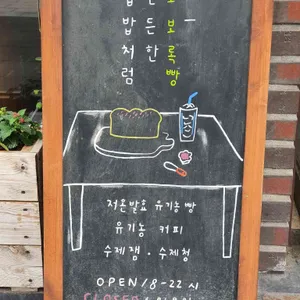 밥처럼
든든한
보록빵
저온발효 유기농빵
유기농 커피
수제잼 · 수제청
OPEN / 8-22시
CLOSED /